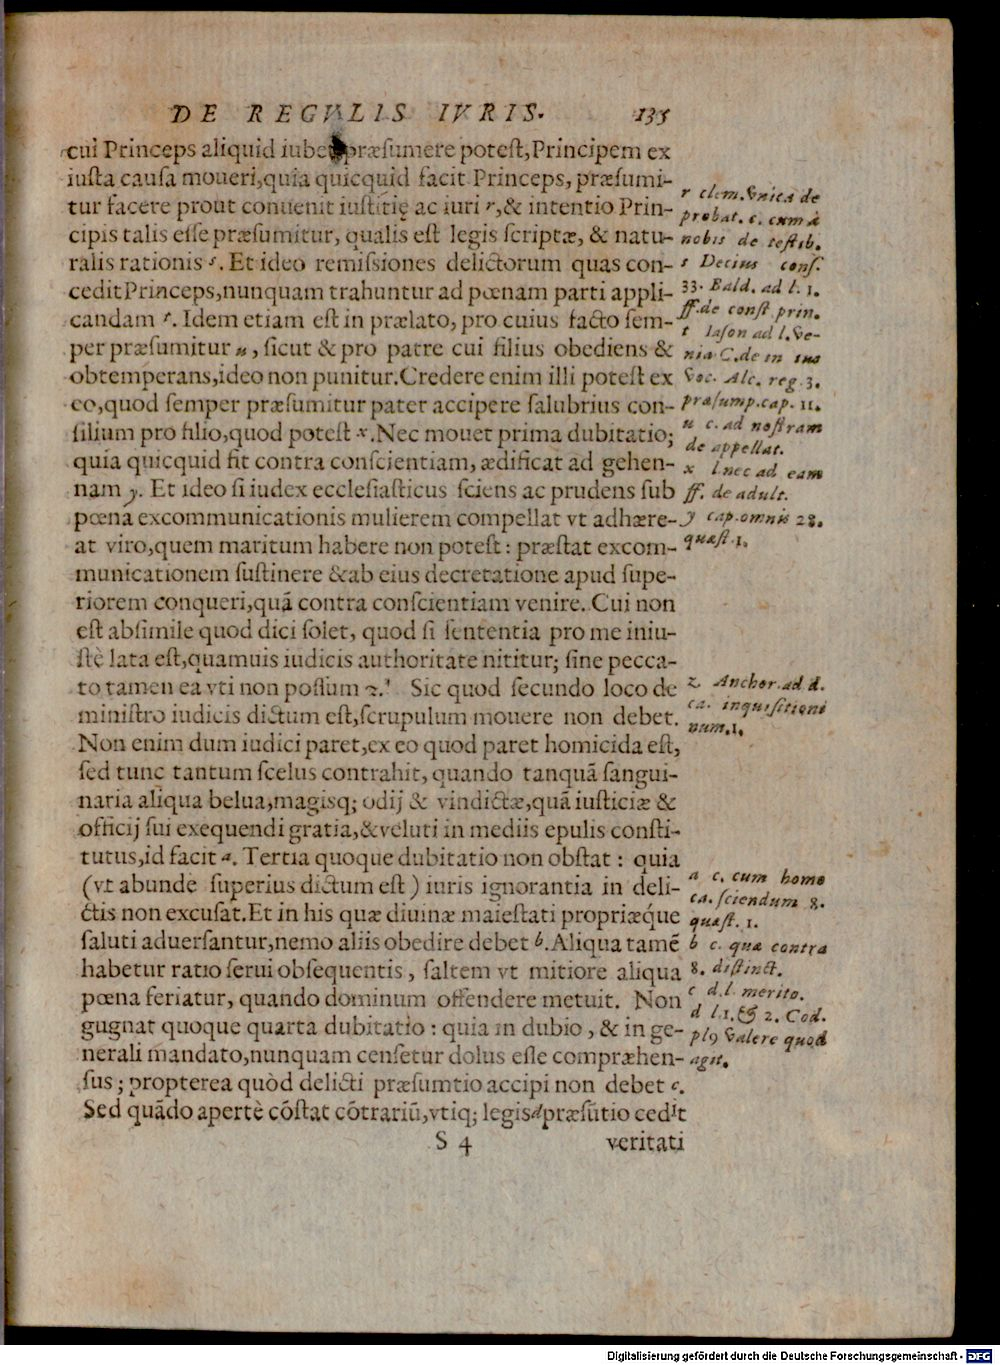 DE REGVLIS IVRIS. 135
cui Princeps aliquid iubet præſumere poteſt, Principem ex
iuſta cauſa moueri, quia quicquid facit Princeps, præſumi-
tur facere prout conuenit iuſtitię ac iuri r, & intentio Prin-
cipis talis eſſe præſumitur, qualis eſt legis ſcriptæ, & natu-
ralis rationis ſ. Et ideo remiſsiones delictorum quas con-
cedit Princeps, nunquam trahuntur ad pœnam parti appli-
candam t. Idem etiam eſt in prælato, pro cuius facto ſem-
per præſumitur u, ſicut & pro patre cui filius obediens &
obtemperans, ideo non punitur. Credere enim illi poteſt ex
eo, quod ſemper præſumitur pater accipere ſalubrius con-
ſilium pro filio, quod poteſt x. Nec mouet prima dubitatio;
quia quicquid fit contra conſcientiam, ædificat ad gehen-
nam y. Et ideo ſi iudex eccleſiaſticus ſciens ac prudens ſub
pœna excommunicationis mulierem compellat vt adhære-
at viro, quem maritum habere non poteſt: præſtat excom-
municationem ſuſtinere & ab eius decretatione apud ſupe-
riorem conqueri, quã contra conſcientiam venire. Cui non
eſt abſimile quod dici ſolet, quod ſi ſententia pro me iniu-
ſtè lata eſt, quamuis iudicis authoritate nititur; ſine pecca-
to tamen ea vti non poſſum z. Sic quod ſecundo loco de
miniſtro iudicis dictum eſt, ſcrupulum mouere non debet.
Non enim dum iudici paret, ex eo quod paret homicida eſt,
ſed tunc tantum ſcelus contrahit, quando tanquã ſangui-
naria aliqua belua, magisq; odij & vindictæ, quã iuſticiæ &
officij ſui exequendi gratia, & veluti in mediis epulis conſti-
tutus, id facit a. Tertia quoque dubitatio non obſtat: quia
(vt abunde ſuperius dictum eſt) iuris ignorantia in deli-
ctis non excuſat. Et in his quæ diuinæ maieſtati propriæq́ue
ſaluti aduerſantur, nemo aliis obedire debet b. Aliqua tamẽ
habetur ratio ſerui obſequentis, ſaltem vt mitiore aliqua
pœna feriatur, quando dominum offendere metuit. Non
gugnat quoque quarta dubitatio: quia in dubio, & in ge-
nerali mandato, nunquam cenſetur dolus eſſe compræhen-
ſus; propterea quòd delicti præſumtio accipi non debet c.
Sed quãdo apertè cõſtat cõtrariũ, vtiq; legis d præſũtio cedit
S 4 veritati
r clem. vnica de
probat. c. cum à
nobis de teſtib.
s Decius conſ.
33. Bald. ad l. 1.
ff. de conſt prin.
t Iaſon ad l. Ve-
nia C. de in ius
voc. Alc. reg 3.
præſump. cap. 11.
u c. ad noſtram
de appellat.
x l nec ad eam
ff. de adult.
y cap. omnis 28.
quæſt. 1.
z Anchor. ad d.
ca. inquiſitioni
num. 1.
a c. cum homo
ca. ſciendum 8.
quæſt. 1.
b c. quæ contra
8. diſtinct.
c d. l. merito.
d l. 1. & 2. Cod.
pl9 valere quod
agit.
Digitalisierung gefördert durch die Deutsche Forschungsgemeinschaft - DFG